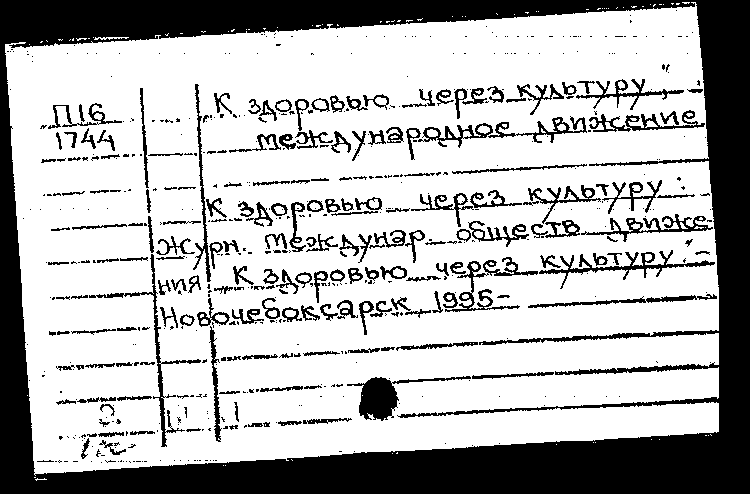 П16
1744
К здоровью через культуру",
международное движение
К здоровью через культуру :
журн. междунар. обществ движе
ния „К здоровью через культуру." –
Новочебоксарск 1995–